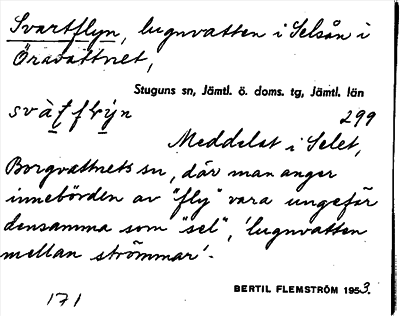 Svartflyn, lugnvatten i Selsån i
Öravattnet,
Stuguns sn, Jämtl. ö. doms. tg, Jämtl. län
299
Meddelat i Selet,
Borgvattnets sn, där man anger
innebörden av "fly" vara ungefär
densamma som "sel", 'lugnvatten
mellan strömmar'.
BERTIL FLEMSTRÖM 1953.
171